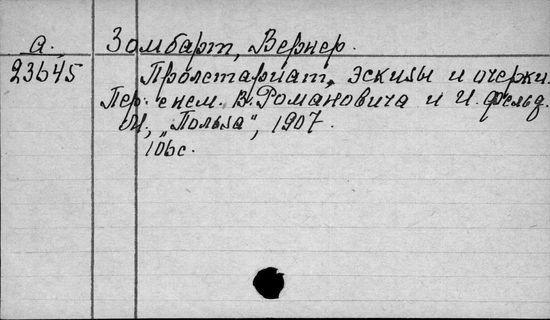 а. Зомбарт, Вернер.
23645 Пролетариат, эскизы и очерки.
Пер. с нем. В. Романовича и И. Фельд.
М., „Польза“, 1907.
106с.